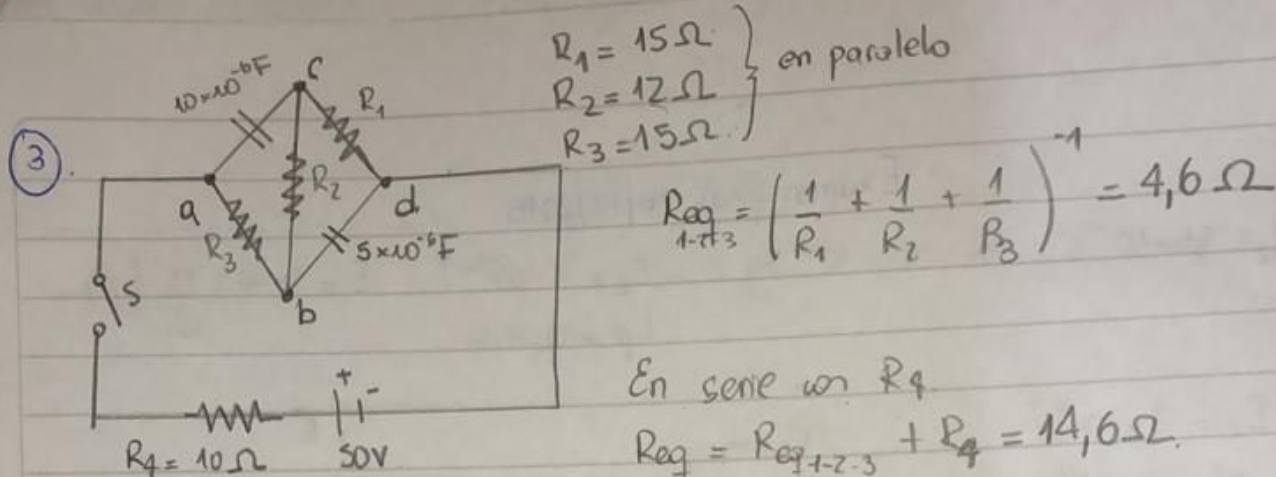 3
10×10⁻⁶F
c
R₁
R₂
a
d
R₃
5×10⁻⁶F
b
S
+ -
R₄ = 10 Ω
50V
R₁ = 15 Ω
R₂ = 12 Ω
R₃ = 15 Ω
} en paralelo
Req₁₋₂₋₃ = (1/R₁ + 1/R₂ + 1/R₃)⁻¹ = 4,6 Ω
En serie con R₄.
Req = Req₁₋₂₋₃ + R₄ = 14,6 Ω.